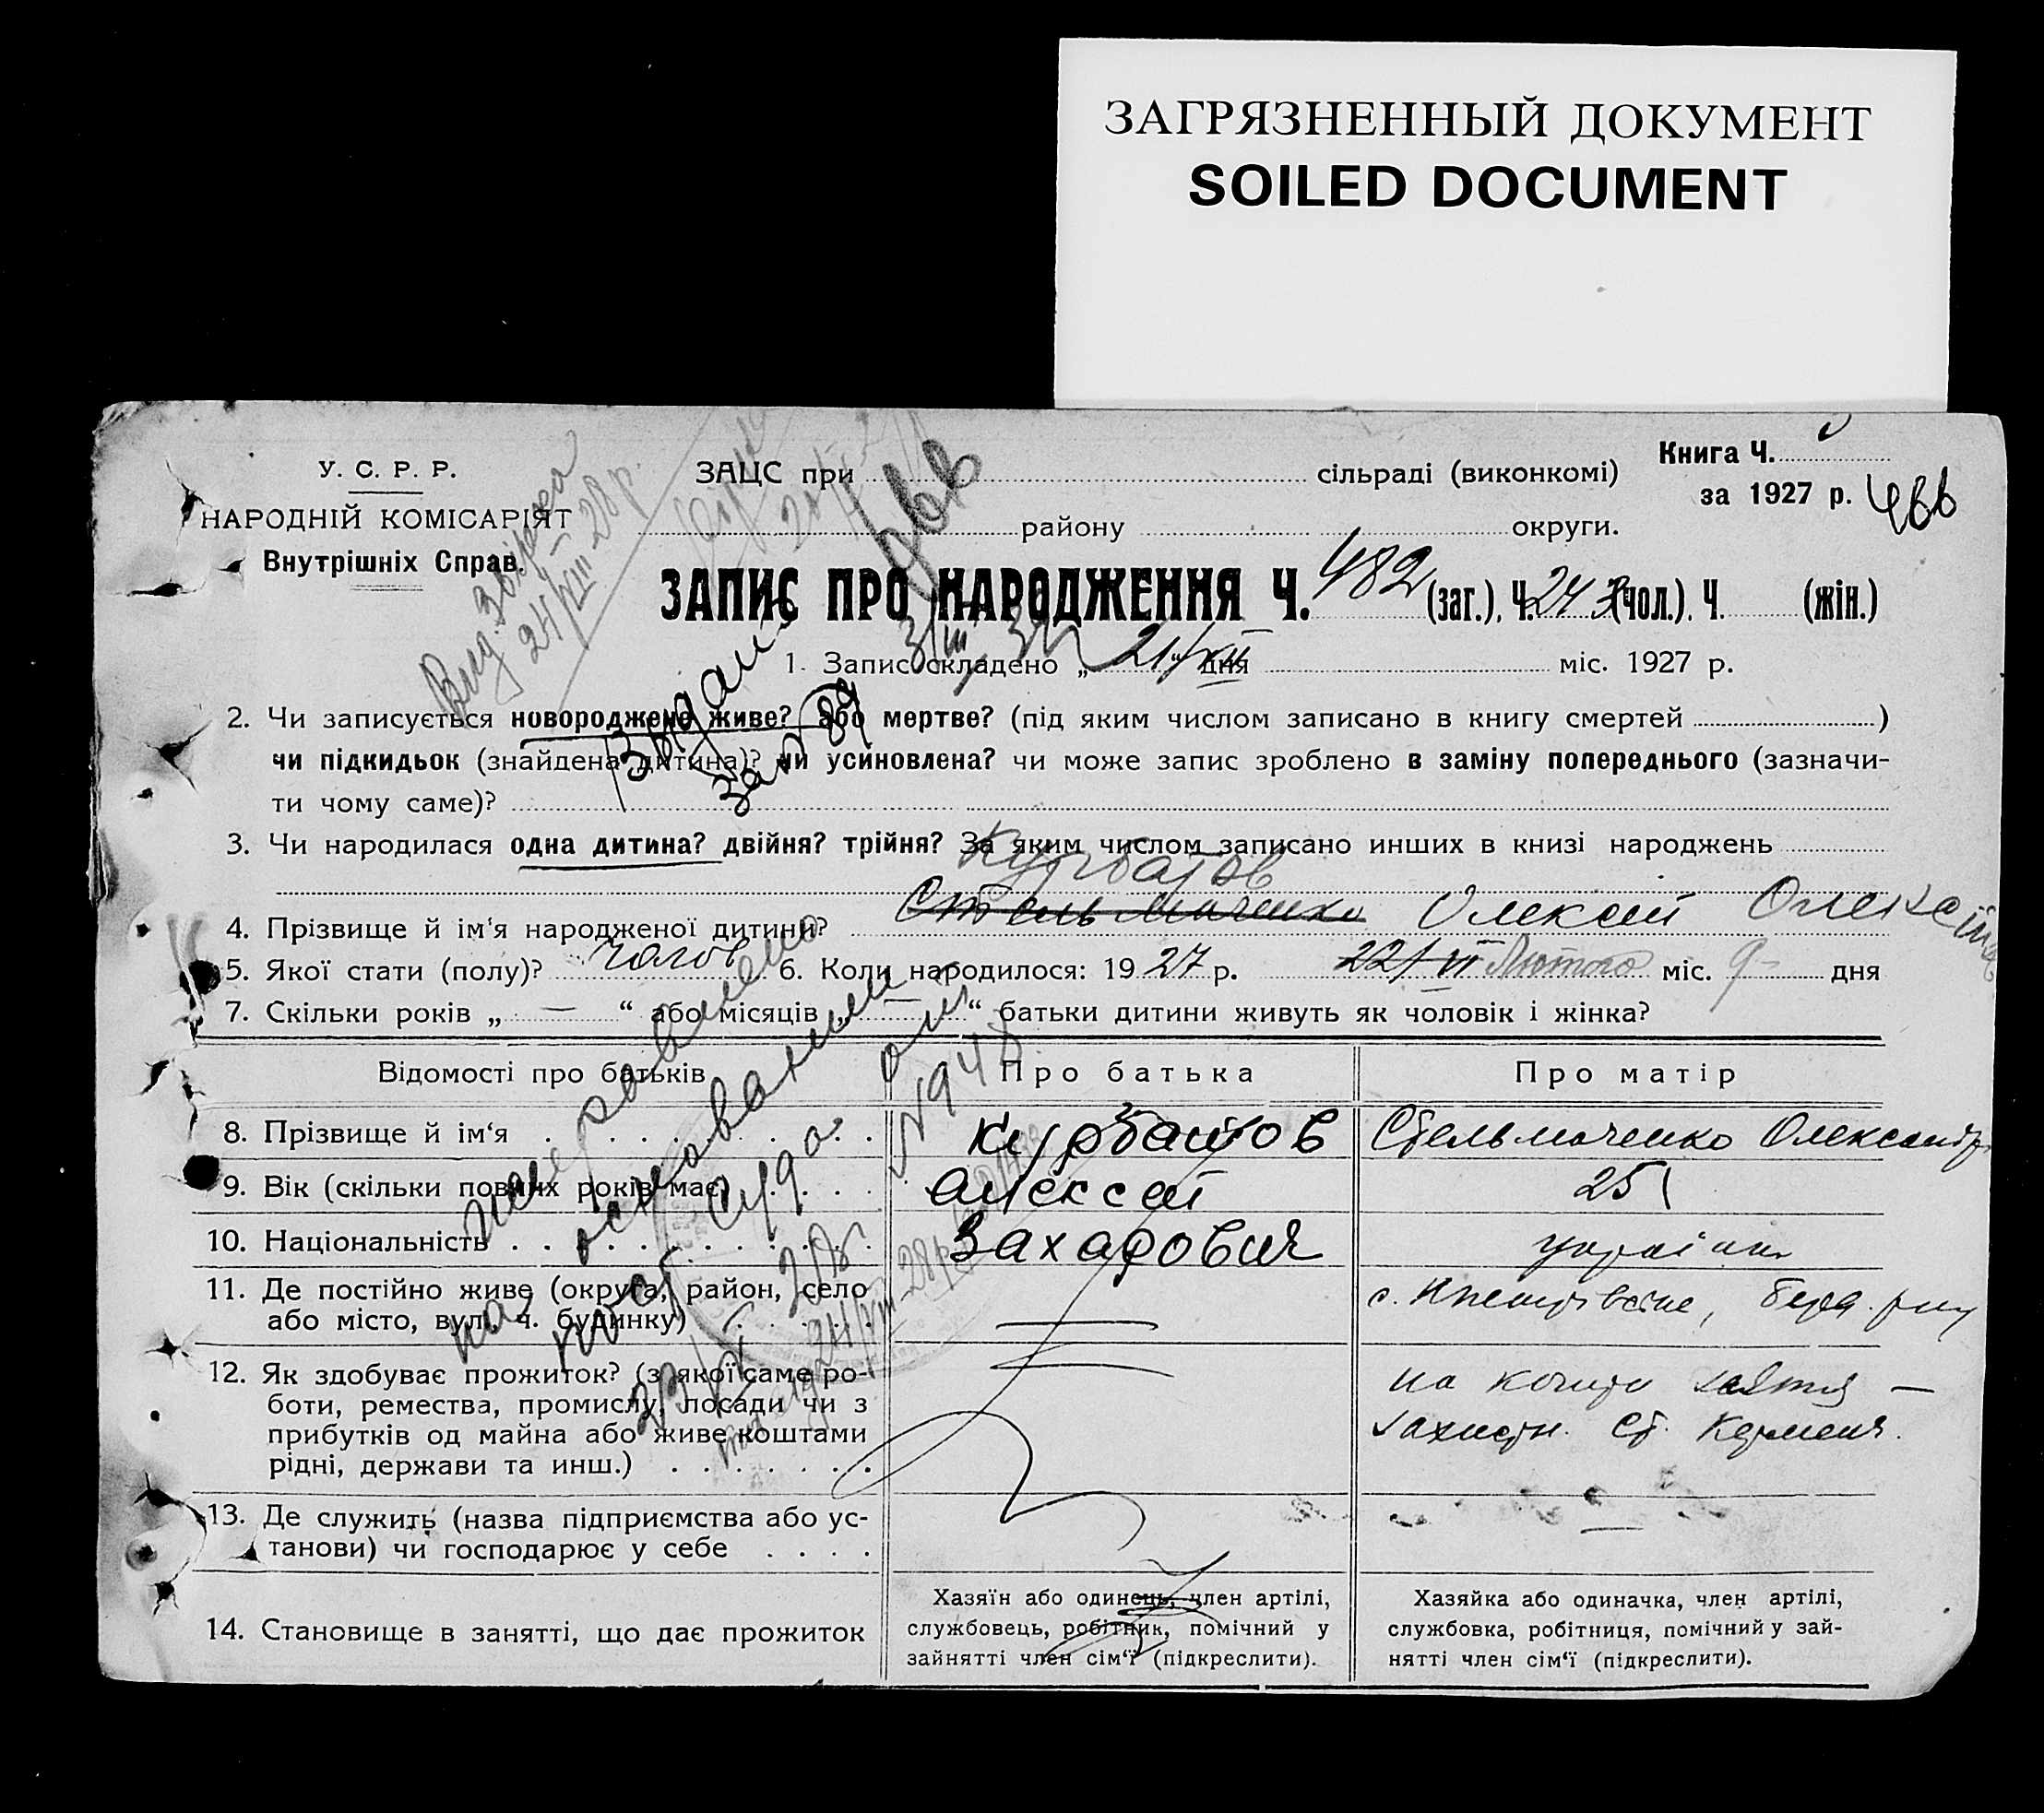 ЗАГРЯЗНЕННЫЙ ДОКУМЕНТ
SOILED DOCUMENT
У. С. Р. Р.
НАРОДНІЙ КОМІСАРІЯТ
Внутрішніх Справ.
ЗАЦС при сільраді (виконкомі)
району округи.
Книга Ч.
за 1927 р. 466
466
Вид.
24/VIII-28 р.
ЗАПИС ПРО НАРОДЖЕННЯ Ч. 482 (заг.), Ч. 243 (чол.), Ч. (жін.)
1. Запис складено „21/XII“ дня міс. 1927 р.
Выдан
за № 89
2. Чи записується новороджене живе? або мертве? (під яким числом записано в книгу смертей )
чи підкидьок (знайдена дитина)? чи усиновлена? чи може запис зроблено в заміну попереднього (зазначи-
ти чому саме)?
3. Чи народилася одна дитина? двійня? трійня? За яким числом записано инших в книзі народжень
Курбатов
4. Прізвище й ім‘я народженої дитини? Стельмаченко Олексій
5. Якої стати (полу)? чолов 6. Коли народилося: 1927 р. 22/VI Лютого міс. 9 дня
7. Скільки років „ — “ або місяців „ — “ батьки дитини живуть як чоловік і жінка?
Відомості про батьків
Про батька
Про матір
8. Прізвище й ім‘я
Курбатов
Стельмаченко Олександр
9. Вік (скільки повних років має)
Алексей
25
10. Національність
Захарович
українка
11. Де постійно живе (округа, район, село
або місто, вул., ч. будинку)
12. Як здобуває прожиток? (з якої саме ро-
боти, ремества, промислу, посади чи з
прибутків од майна або живе коштами
рідні, держави та инш.)
на кошти
13. Де служить (назва підприємства або ус-
танови) чи господарює у себе
—
14. Становище в занятті, що дає прожиток
Хазяїн або одинець, член артілі,
службовець, робітник, помічний у
зайнятті член сім‘ї (підкреслити).
Хазяйка або одиначка, член артілі,
службовка, робітниця, помічний у зай-
нятті член сім‘ї (підкреслити).
на основании
суда